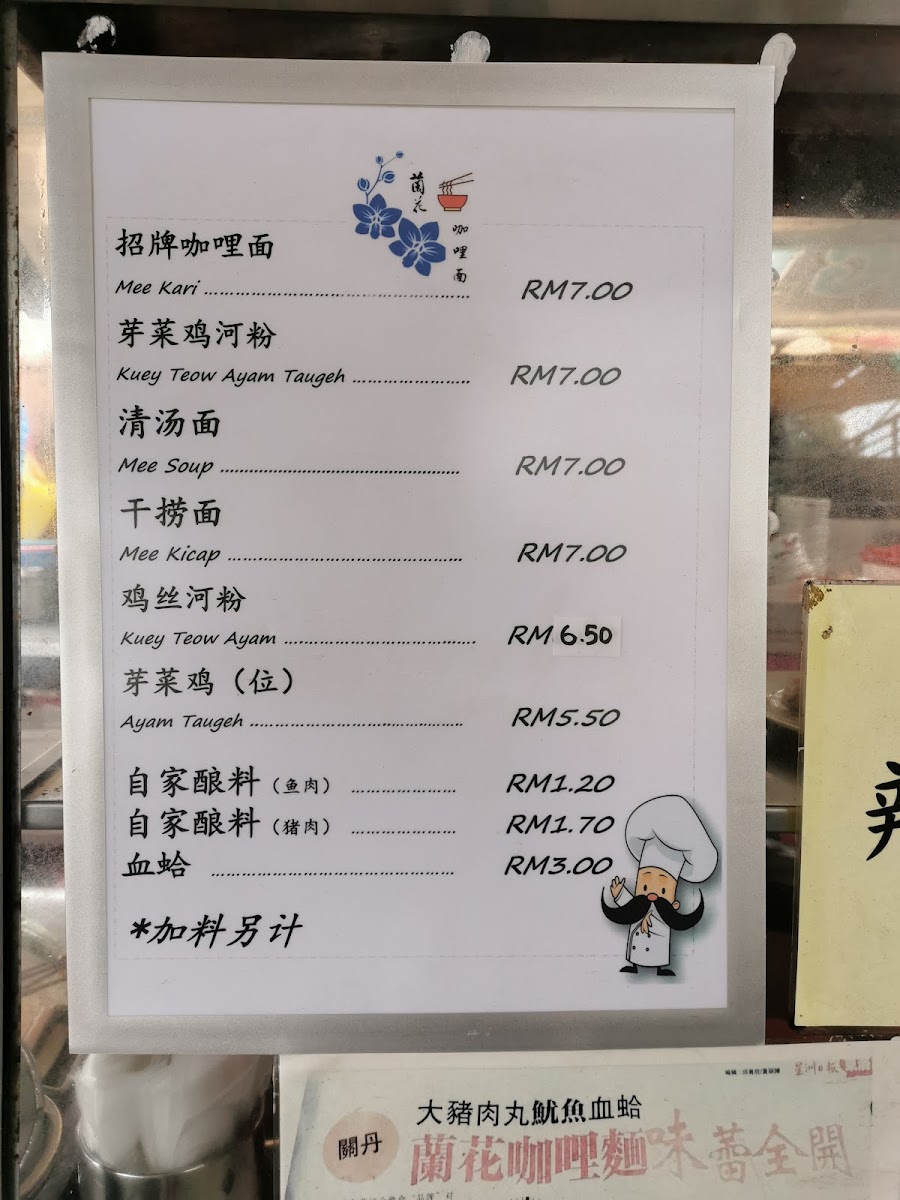 蘭花
咖哩面
招牌咖哩面
Mee Kari ........................................ RM7.00
芽菜鸡河粉
Kuey Teow Ayam Taugeh .................... RM7.00
清汤面
Mee Soup ........................................ RM7.00
干捞面
Mee Kicap ........................................ RM7.00
鸡丝河粉
Kuey Teow Ayam ................................ RM 6.50
芽菜鸡（位）
Ayam Taugeh .................................... RM5.50
自家酿料（鱼肉） .................... RM1.20
自家酿料（猪肉） .................... RM1.70
血蛤 ........................................ RM3.00
*加料另计
星洲日报
大豬肉丸魷魚血蛤
關丹
蘭花咖哩麵味蕾全開